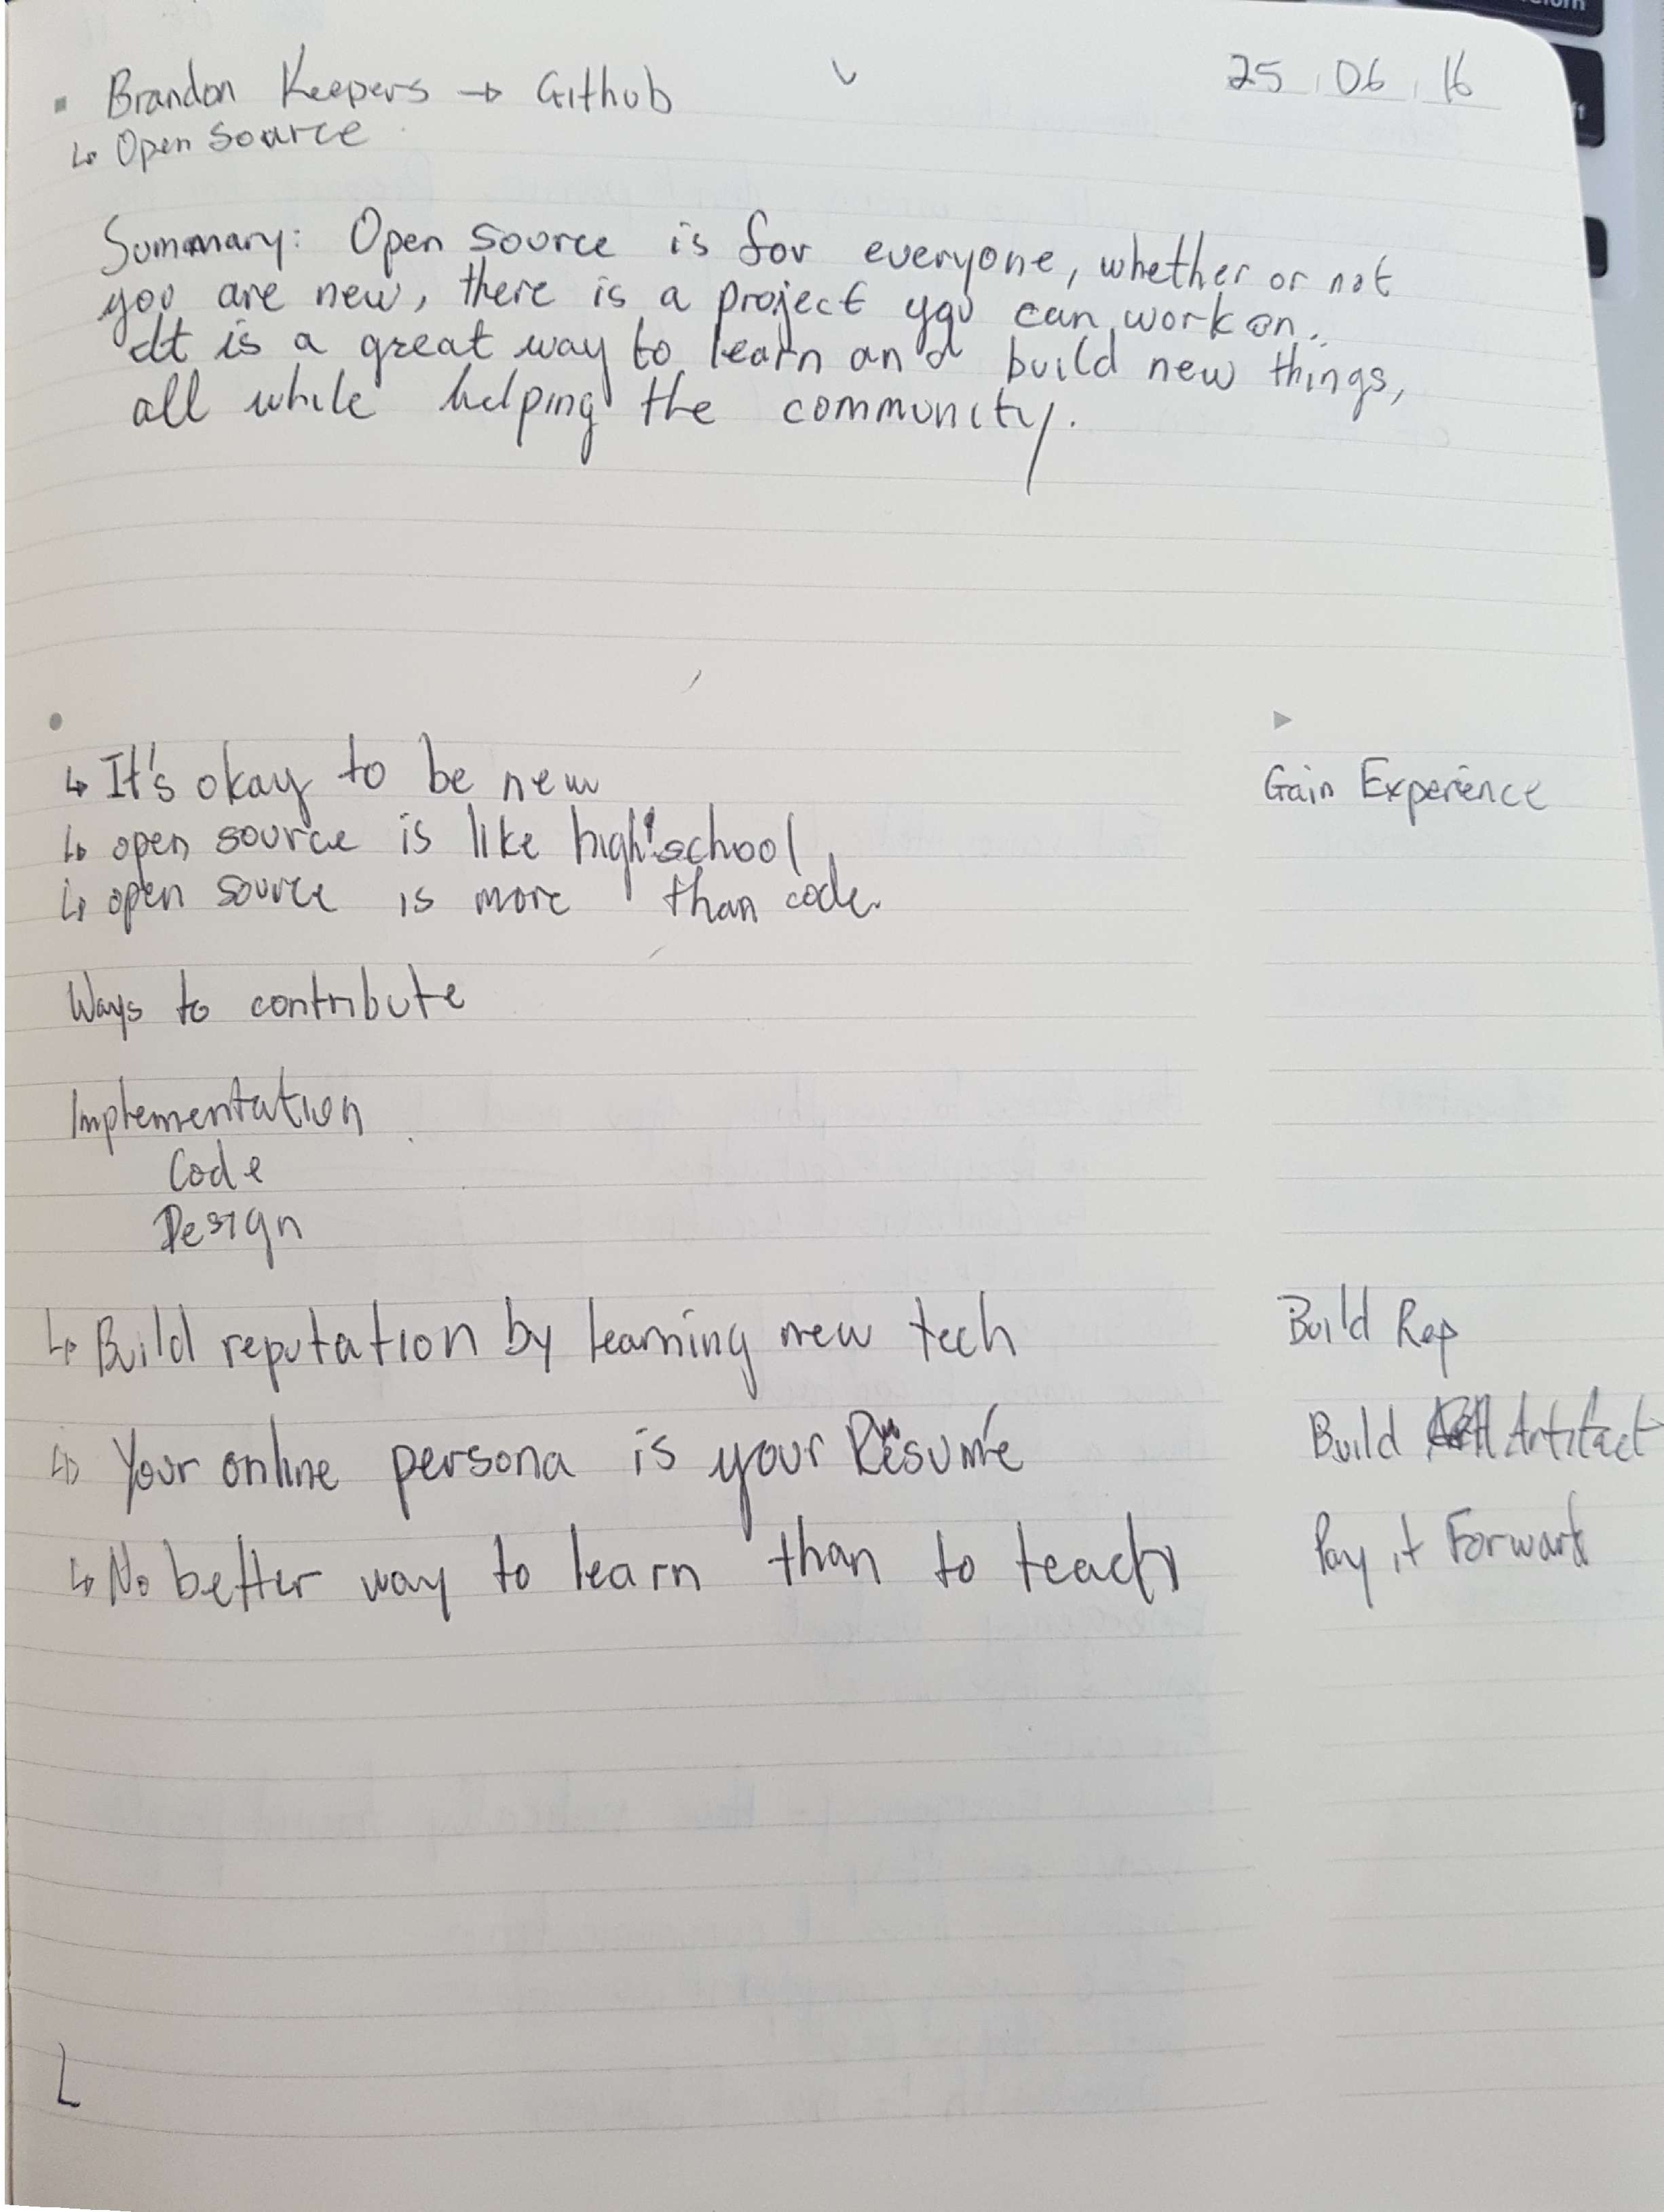 Brandon Keepers → Github
25 06 16
↳ Open Source
Summary: Open source is for everyone, whether or not
you are new, there is a project you can work on.
It is a great way to learn and build new things,
all while helping the community.
↳ It's okay to be new
Gain Experience
↳ open source is like high school
↳ open source is more than code.
Ways to contribute
Implementation
Code
Design
↳ Build reputation by learning new tech
Build Rep
↳ Your online persona is your Résumé
Build Artifact
↳ No better way to learn than to teach
Pay it Forward